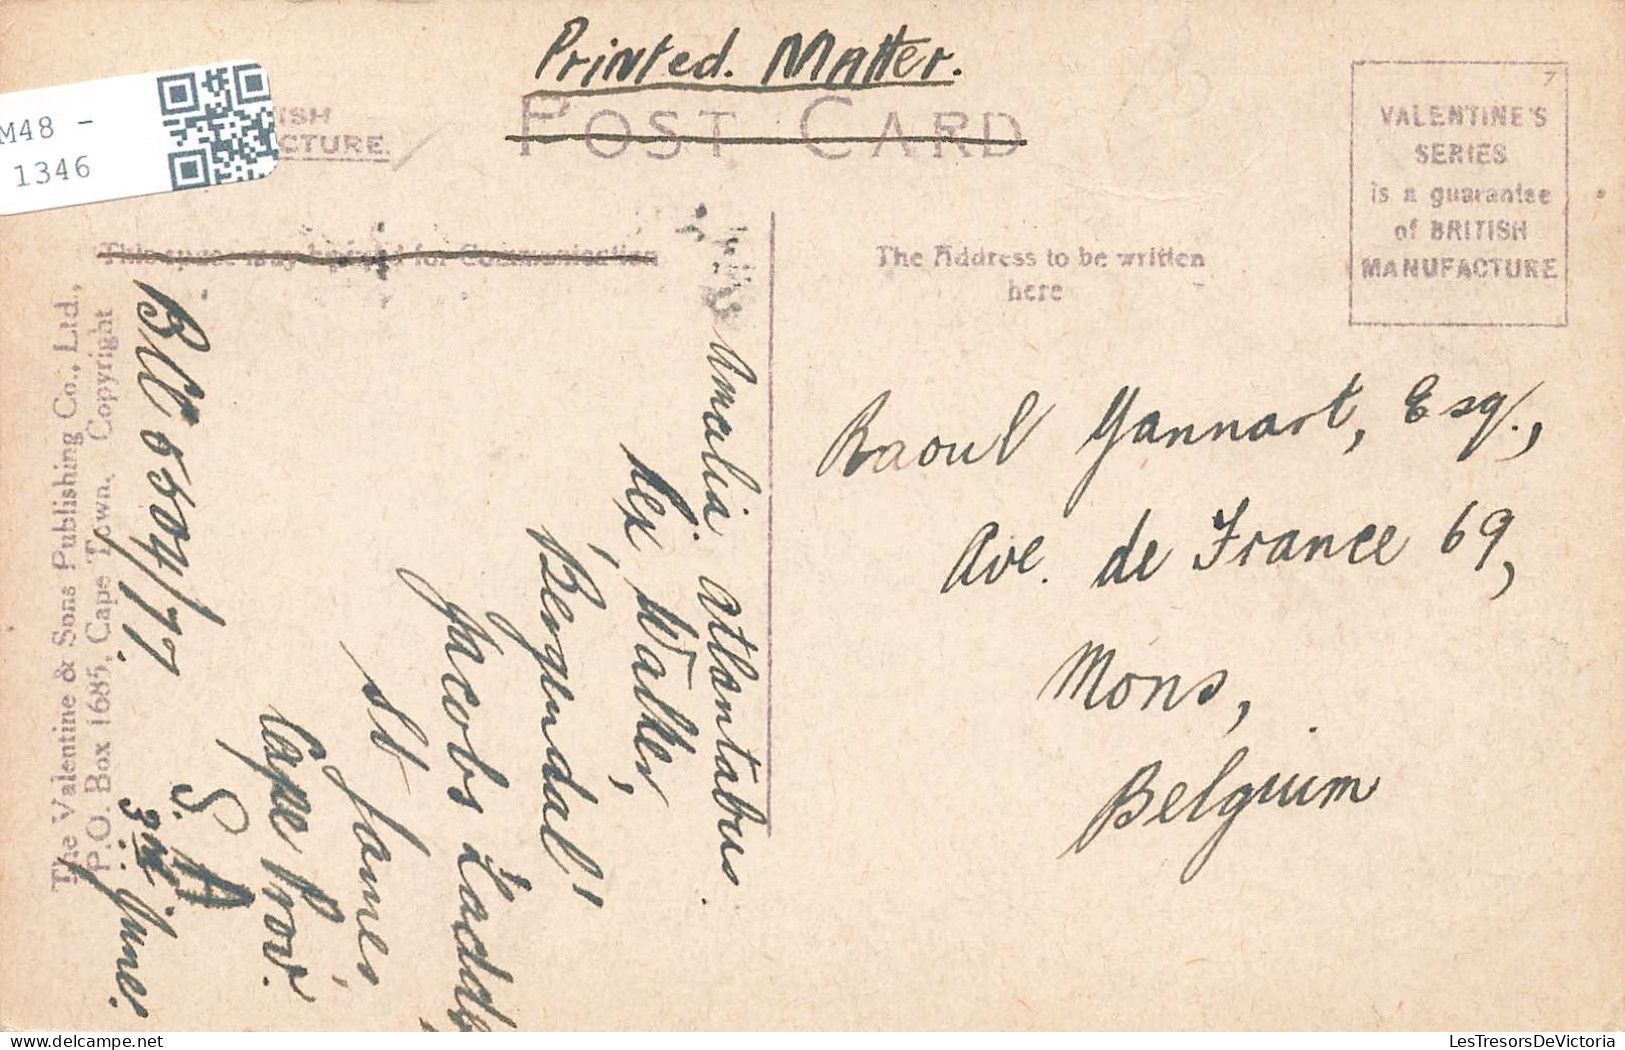 Printed. Matter.
POST CARD
M48 -
1346
ISH
CTURE.
7
VALENTINE'S
SERIES
is a guarantee
of BRITISH
MANUFACTURE
This space may be used for Communication
The Address to be written
here
Raoul Yannart, Esq.,
Ave. de France 69,
Mons,
Belgium
Amalia Atlantabus.
Lex. Walker,
"Bergendal"
Jacobs Ladder,
St James,
Cape Prov.
S. A
3rd June.
BLC 5504/77.
The Valentine & Sons Publishing Co., Ltd.,
P.O. Box 1685, Cape Town. Copyright
LesTresorsDeVictoria